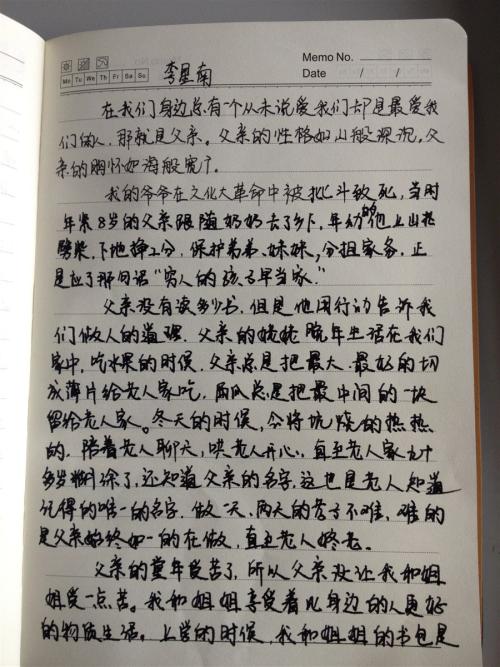 Memo No.
Mo Tu We Th Fr Sa Su
Date / /
李星南
在我们身边总有个从未说爱我们却是最爱我
们的人，那就是父亲。父亲的性格如山般深沉，父
亲的胸怀如海般宽广。
我的爷爷在文化大革命中被批斗致死，当时
年紧8岁的父亲跟随奶奶去了乡下，年幼的他上山
劈柴，下地挣工分，保护弟弟、妹妹，分担家务，正
是应了那句话“穷人的孩子早当家。”
父亲没有读多少书，但是他用行动告诉我
们做人的道理。父亲的姥姥晚年生活在我们
家中，吃水果的时候，父亲总是把最大、最好的切
成薄片给老人家吃，西瓜总是把最中间的一块
留给老人家。冬天的时候，会将炕烧的热热
的，陪着老人聊天，哄老人开心，直至老人家九十
多岁糊涂了，还知道父亲的名字，这也是老人知道
记得的唯一的名字，做一天、两天的孝子不难，难的
是父亲始终如一的在做，直至老人终老。
父亲的童年受苦了，所以父亲没让我和姐
姐受一点苦。我和姐姐享受着比身边的人更好
的物质生活。上学的时候，我和姐姐的书包是